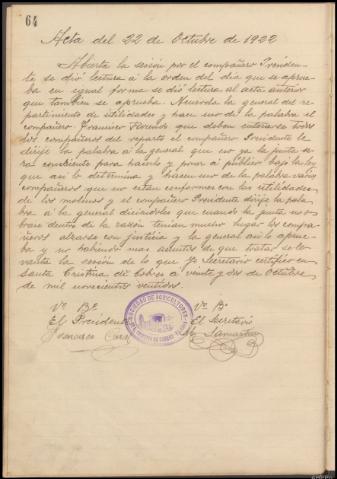 64
Acta del 22 de Octubre de 1922
Abierta la sesión por el compañero Presiden-
te se dió lectura á la orden del dia que se aprue-
ba en igual forma se dió lectura al acta anterior
que tambien se aprueba. Acuerda la general del re-
partimiento de utilidades y hace uso de la palabra el
compañero Florindo que deben enterarse todos
los compañeros del reparto el compañero Presidente le
dirije la palabra á la general que no ya la junta se-
ra conciente para hacerlo y poner al publico bajo la ley
que asi lo determina y hacen uso de la palabra varios
compañeros que no estan conformes con las utilidades
de los molinos y el compañero Presidente dirije la pala-
bra á la general diciendoles que cuando la junta no o-
brase dentro de la razon tenian mucho lugar los compa-
ñeros alzarse con justicia y la general asi lo aprue-
ba y no habiendo mas asuntos de que tratar se le-
vanta la sesión de lo que yo Secretario certifico en
Santa Cristina de Cobres á veinte y dos de Octubre
de mil novecientos veintidos.
Vº Bº Vº Bº
El Presidente El Secretario
Francisco
SOCIEDAD DE AGRICULTORES